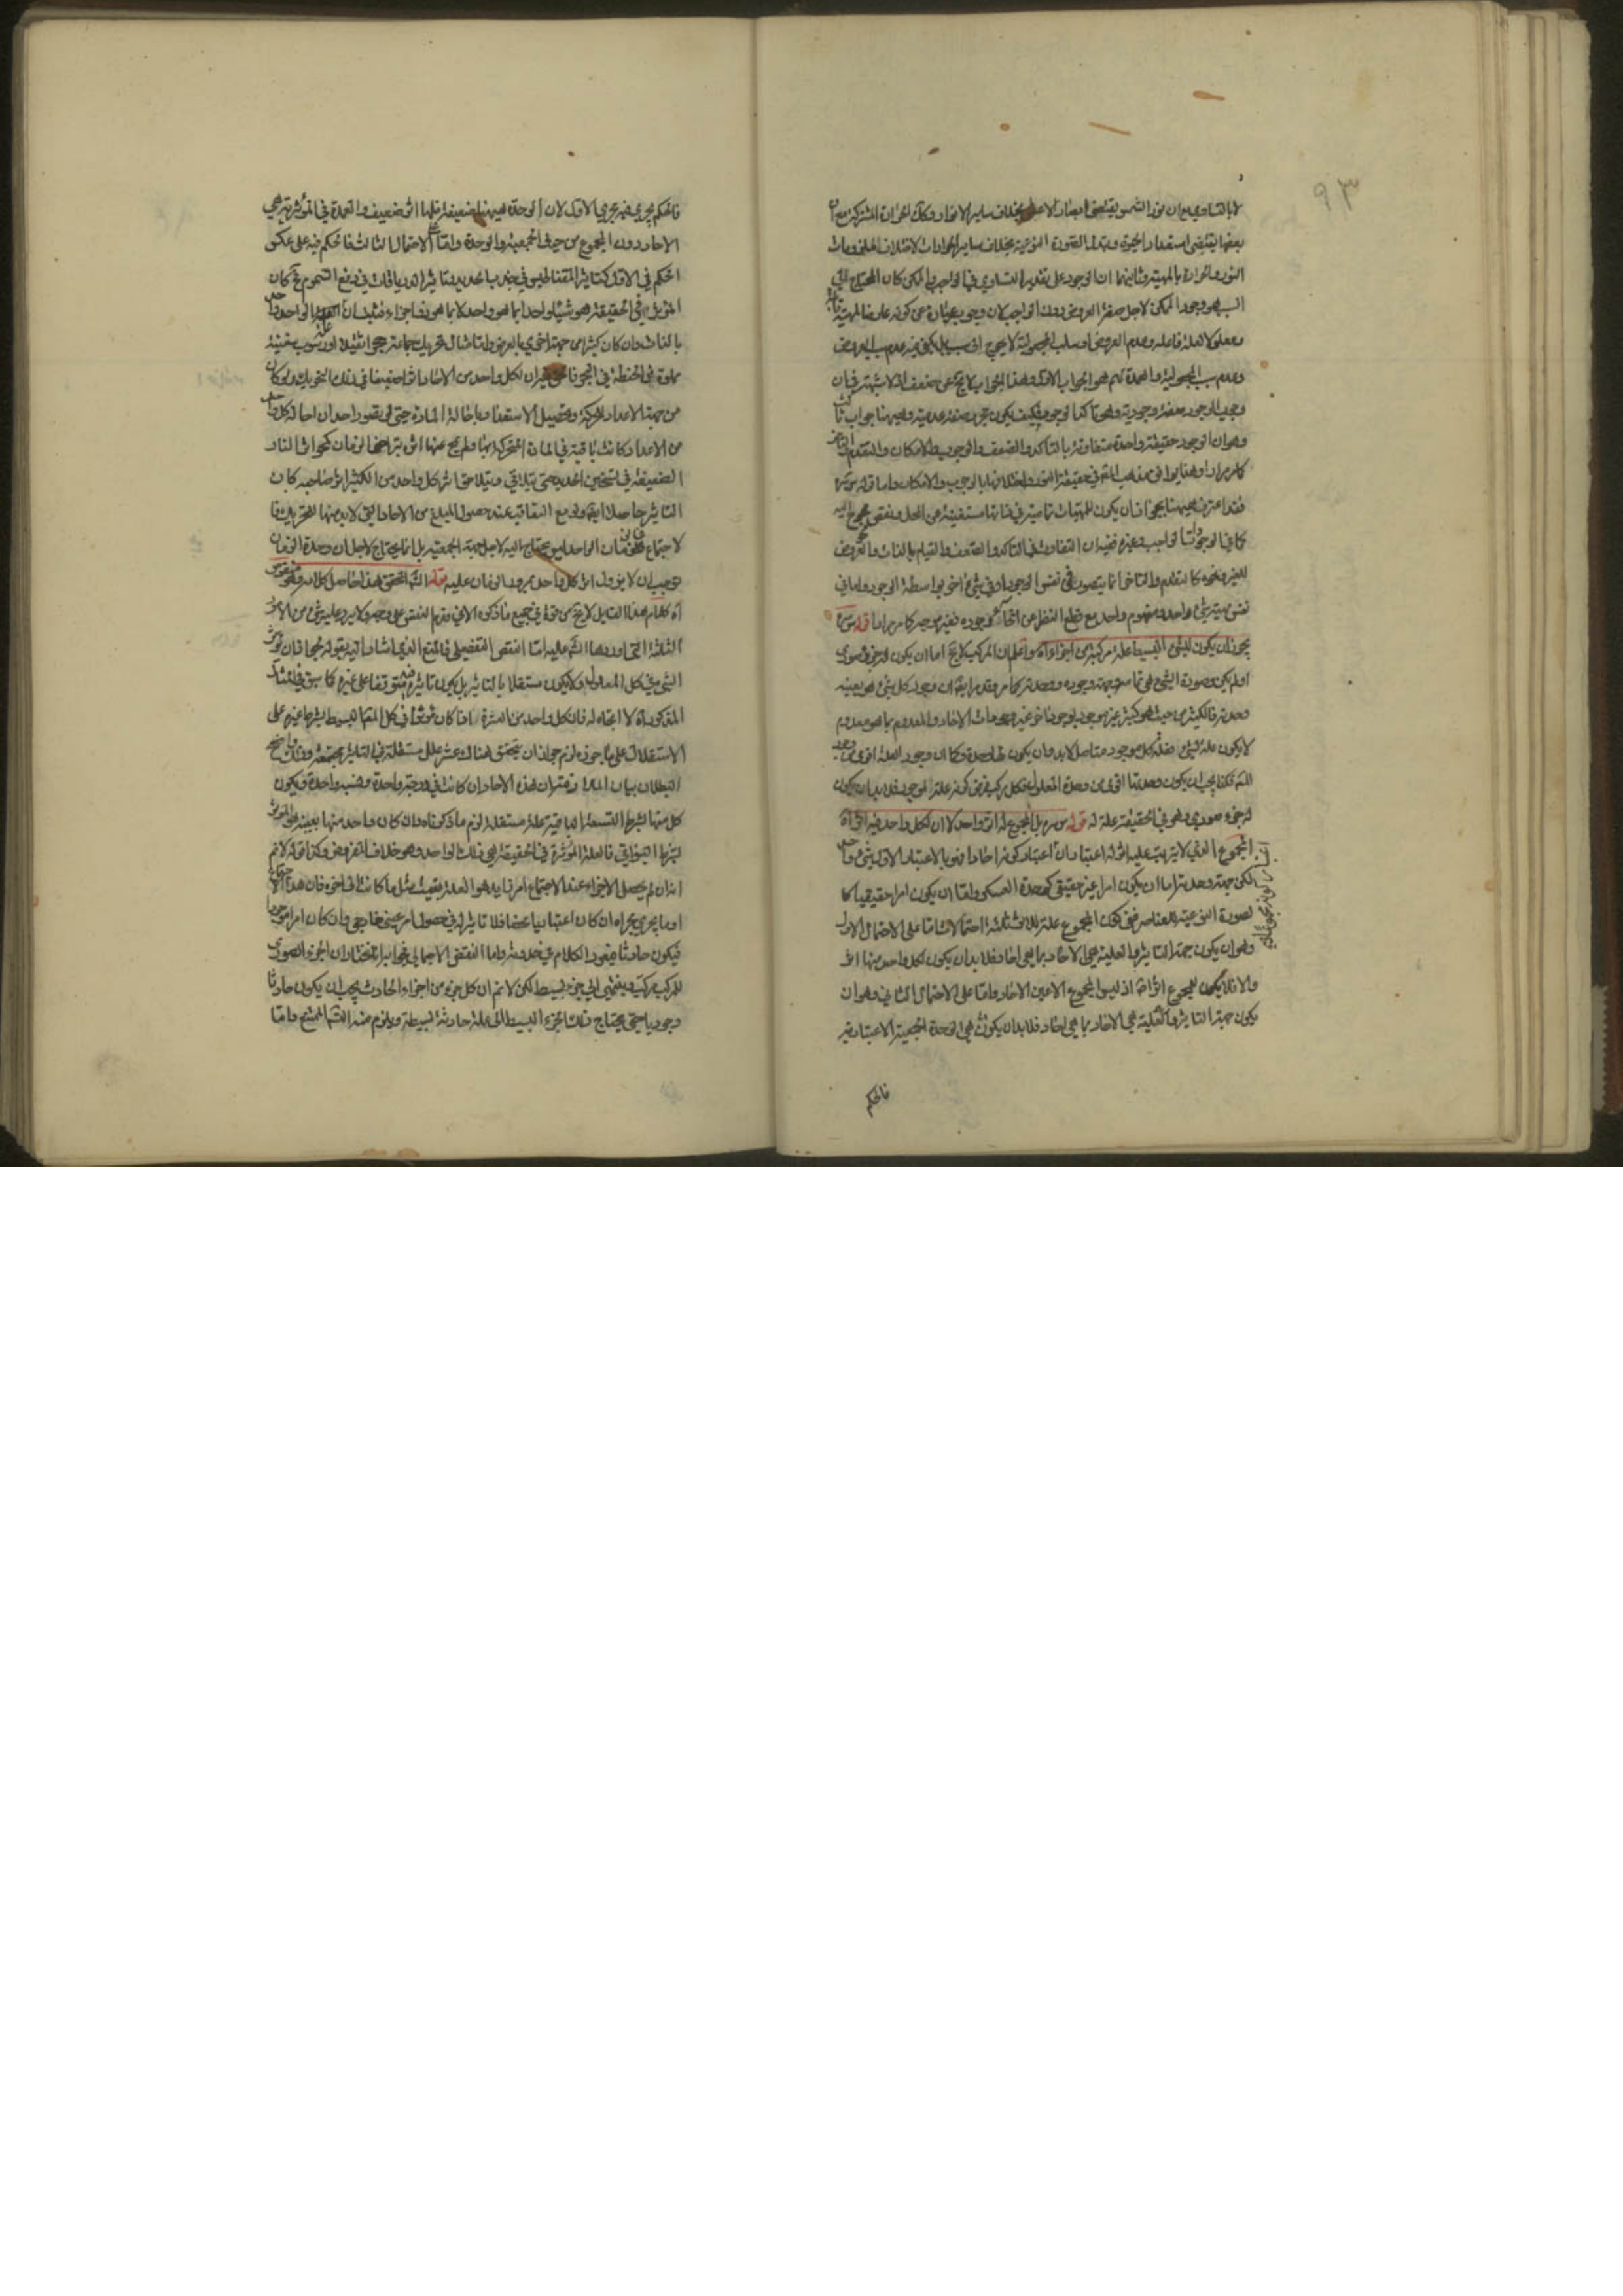 ٩٣
لا بالتساوي مع ان نور الشمس يقتضي ابصار الاعشى بخلاف ساير الانوار وكذلك الحرارة المشتركة مع ان
بعضها يقتضي استعداد الحيوة وتبدل الصورة النوعية بخلاف ساير الحرارات لاختلاف الملزومات
النور والحرارة بالمهية وثانيهما ان الوجود على تقدير التساوي في الواجب والممكن كان المحتاج الى
السبب هو وجود الممكن لاجل صفة العروض دون الواجب لان وجوبه عبارة عن كونه عارضا للمهية
ومعلولا لعلة فاعلة وعدم العروض او سلب المجعولية لا يحوج الى سبب بل يكفي فيه عدم سبب العروض
وعدم سبب المجعولية والعمدة لهم هو الجواب الاول وهذا الجواب لا يخ عن ضعف اذ لا شبهة في ان
وجوب الوجود صفة وجودية وهي تاكد الوجود فكيف يكون تجرده صفة عدمية وههنا جواب ثالث
وهو ان الوجود حقيقة واحدة متفاوتة بالتاكد والضعف والوجوب والامكان والتقدم والتاخر
كما مر مرارا وهذا يوافق مذهب المص في حقيقة النور واختلافها بالوجوب والامكان واما قوله
فقد اعترف ههنا بجواز ان يكون للمهيات تمامية في ذاتها مستغنية عن المحل ونقص محوج اليه
كما في الوجود الواجب وغيره ففيه ان التفاوت في التاكد والضعف والقيام بالذات والعروض
للغير ونحوه كالتقدم والتاخر انما يتصور في نفس الوجود او في شيء اخر بواسطة الوجود واما في
نفس مهية شيء واحد ومفهوم واحد مع قطع النظر عن انحاء وجوده فغير موجه كما مر مرارا قوله
يجوز ان يكون للشيء البسيط علة مركبة من اجزاء آه واعلم ان المركب لا يخ اما ان يكون له جزء صوري
او لم يكن وصورة الشيء هي تمامه وجهة وجوده ووحدته كما مر وقد مر ايضا ان وجود كل شيء هو بعينه
وحدته فالكثير من حيث هو كثير غير موجود بوجود اخر غير وجودات الاحاد والمعدوم بما هو معدوم
لا يكون علة لشيء فعلة كل موجود متاصل لا بد وان يكون لها وحدة وكما ان وجود العلة اقوى من وجود
المعلول فكذا يجب ان يكون وحدتها اقوى من وحدة المعلول فكل مركب فرض كونه علة لموجود فلا بد ان يكون
له جزء صوري وهو في الحقيقة علة له قوله بل المجموع له اثر واحد لا ان لكل واحد فيه اثرا آه
المجموع الذي لا يترتب عليه اثر له اعتباران اعتبار كونه احادا فهو بالاعتبار الاول شيء واحد
لكن جهة وحدته اما ان يكون امرا غير حقيقي كوحدة العسكر واما ان يكون امرا حقيقيا كا
لصورة النوعية للعناصر ففي كون المجموع علة للاثر ثلثة احتمالات اما على الاحتمال الاول
وهو ان يكون جهة التاثير والعلية هي الاحاد بما هي احاد فلا بد ان يكون لكل واحد منها اثر
والا فلا يكون للمجموع اثر اصلا اذ ليس المجموع الا عين الاحاد واما على الاحتمال الثاني وهو ان
يكون جهة التاثير والعلية هي الاحاد بما هي احاد فلا بد ان يكون هي الوحدة الجمعية الاعتبارية
فالحكم
فالحكم يجري فيه مجرى الاول لان الوحدة ههنا ضعيفة فلها اثر ضعيف والعمدة في المؤثرية هي
الاحاد دون المجموع من حيث الجمعية والوحدة واما الاحتمال الثالث فالحكم فيه على عكس
الحكم في الاول كتاثير المغناطيس في جذب الحديد وتاثير الترياقات في دفع السموم فح كان
المؤثر في الحقيقة هو شيئا واحدا بما هو واحد لا بما هو ذا اجزاء فثبت ان الواحد واحد
بالذات وان كان كثيرا من جهة اخرى بالعرض واما مثال تحريك جماعة حجرا ثقيلا او رسوب سفينة
مملوة من الحنطة في البحر فالحق فيه ان لكل واحد من الاحاد اثرا ضعيفا في ذلك التحريك ولو كان
من جهة الاعداد للحركة وتحصيل الاستعداد باحالة المادة حتى لو تصور احد ان احالة كل واحد
من الاعداد كانت باقية في المادة المتحركة ولم يمح عنها اثر بتراخي الزمان كحر اثر النار
الضعيفة في تسخين الحديد حتى يتلاقي ويتلاحق اثر كل واحد من الكثير اثر صاحبه كان
التاثير حاصلا ايضا ولو مع التعاقب عند حصول المبلغ من الاحاد التي لا بد منها للتحريك فا
لاجتماع في زمان الواحد ليس محتاج اليه لاجل هيئة الجمعية بل انما يحتاج لاجل ان وحدة الزمان
توجب ان لا يزول اثر كل واحد بمرور الزمان عليه قوله الشم التحقيق هذا حاصل كلامه وهو منقوض
آه كلام هذا القايل لا يخ من قوة في جميع ما ذكره الا في تقديم النقض على وجه ولا يرد عليه شيء من الامور
الثلثة التي اوردها الشم عليه اما النقض التفصيلي فالمنع الذي اشار اليه بقوله لجواز ان يؤثر
الشيء في كل المعلول ولا يكون مستقلا بالتاثير بل يكون تاثيره فيه متوقفا على غيره كما سبق في المثال
المذكور آه لا اتجاه له فان كل واحد من العشرة اذا كان مؤثرا في كل المعلول البسيط بشرط غيره على
الاستقلال على ما جوزه لزم جواز ان يتحقق هناك عشر علل مستقلة في التاثير مجتمعة وذلك واضح
البطلان بيان الملازمة ان هذه الاحاد ان كانت في درجة واحدة ونسبة واحدة ويكون
كل منها بشرط التسعة الباقية علة مستقلة لزم ما ذكرناه وان كان واحد منها بعينه هو المؤثر
بشرط البواقي فالعلة المؤثرة في الحقيقة هي ذلك الواحد وهو خلاف المفروض وكذا قوله لانم
انه ان لم يحصل للاجزاء عند الاجتماع امر زايد هو العلة بقيت مثل ما كانت الى اخره فان هذا
او ما يجري مجراه ان كان اعتباريا محضا فلا تاثير له في حصول امر عيني خارجي وان كان امرا موجودا
فيكون حادثا فيعود الكلام في حدوثه واما النقض الاجمالي فجوابه انا نختار ان الجزء الصوري
للمركب مركب وينتهي الى جزء بسيط لكن لانم ان كل جزء من اجزاء الحادث يجب ان يكون حادثا
وجوديا حتى يحتاج ذلك الجزء البسيط الى علة حادثة بسيطة ويلزم منه التسم الممتنع واما